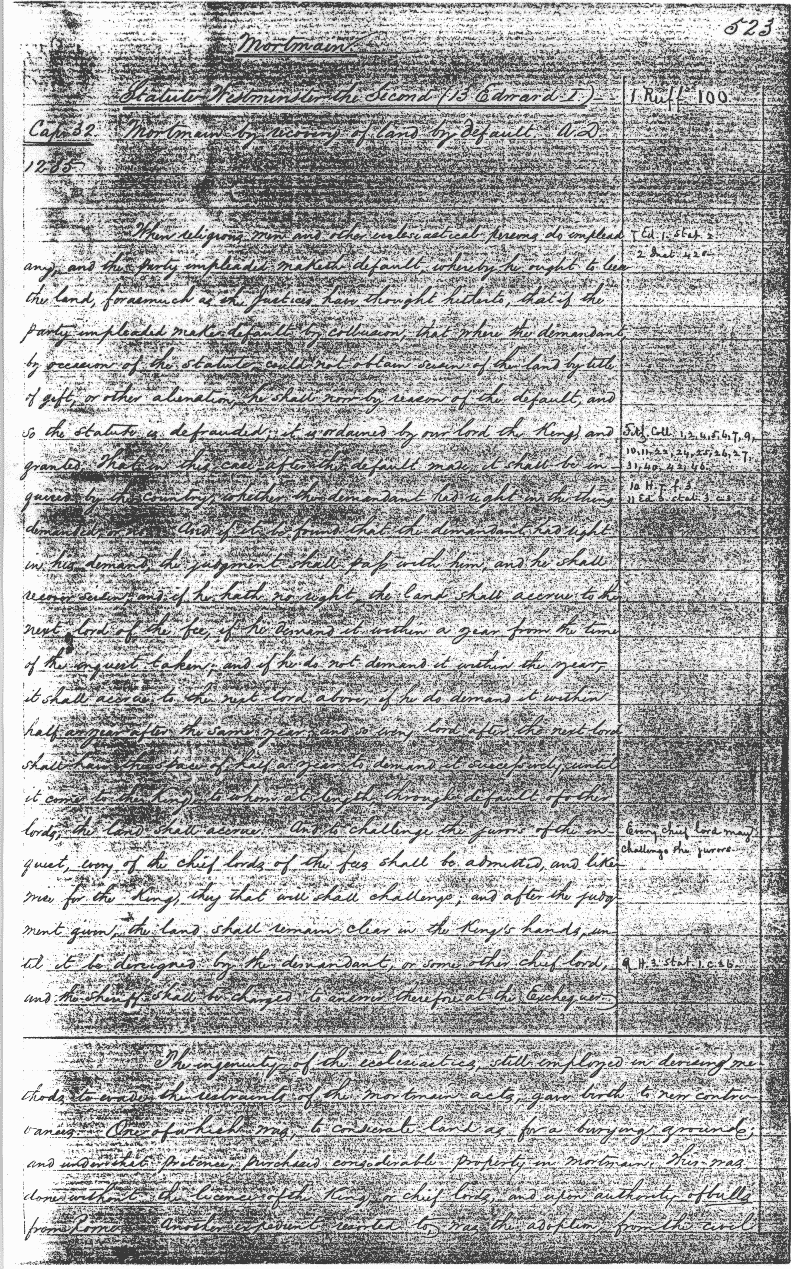 523
Mortmain.
Statute Westminster the Second (13 Edward I.)
1 Ruff 100.
Cap. 32 Mortmain by recovery of land by default A.D.
1285
When religious men and other ecclesiastical persons do implead
7 Ed. 1. Stat. 2
2 Inst. 428
any, and the party impleaded maketh default, whereby he ought to lese
the land, forasmuch as the Justices have thought hitherto, that if the
party impleaded make default by collusion, that where the demandant
by occasion of the statute could not obtain seisin of the land by title
of gift, or other alienation, he shall now by reason of the default, and
so the statute is defrauded; it is ordained by our lord the King, and
Coll. 1, 2, 4, 5, 6, 7, 9,
10, 11, 22, 24, 25, 26, 27,
31, 40, 42, 46.
granted, That in this case after the default made it shall be in-
quired by the country, whether the demandant had right in the thing
demanded or no. And if it be found that the demandant had right
in his demand, the judgment shall pass with him, and he shall
recover seisin; and if he hath no right, the land shall accrue to the
next lord of the fee, if he demand it within a year from the time
of the enquest taken; and if he do not demand it within the year,
it shall accrue to the next lord above, if he do demand it within
half a year after the same year; and so every lord after the next lord
shall have the space of half a year to demand it successively, until
it come to the King, to whom at length through default of other
lords, the land shall accrue. And to challenge the jurors of the in-
Every chief lord may
challenge the jurors.
quest, every of the chief lords of the fees shall be admitted, and like
wise for the King, they that will shall challenge; and after the judg
ment given, the land shall remain clear in the King's hands, un
til it be dereigned by the demandant, or some other chief lord,
and the sheriff shall be charged to answer therefore at the Exchequer.
The ingenuity of the ecclesiastics, still employed in devising me
thods to evade the restraints of the mortmain acts, gave birth to new contri
vances. One of which was, to consecrate land as for a burying ground;
and under that pretence, purchased considerable property in mortmain. This was
done without the licence of the King, or chief lords, and upon authority of bulls
from Rome. Another expedient resorted to, was the adoption from the civil